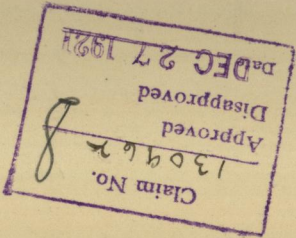 Claim No.
Approved
Disapproved
Da DEC 27 1921